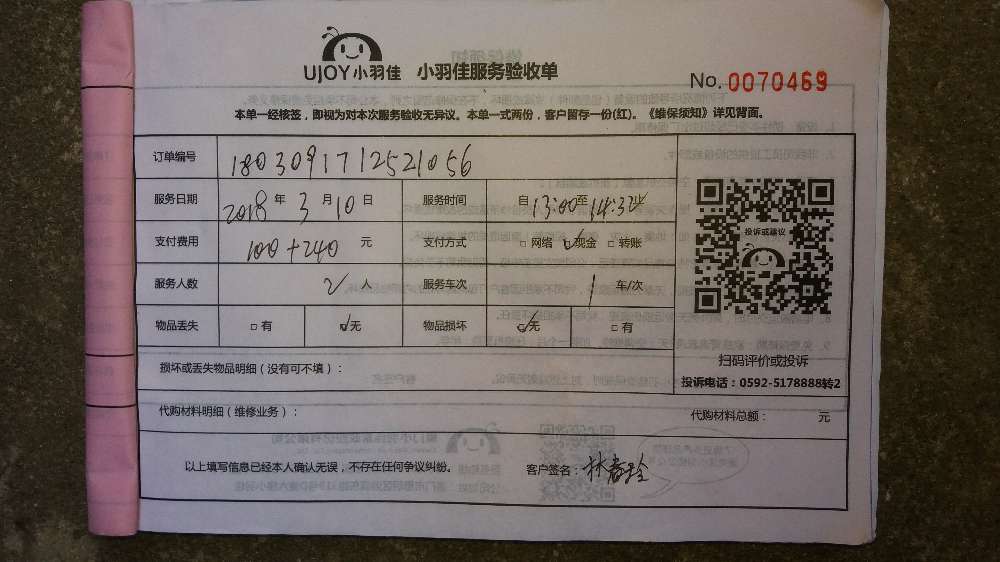 UJOY小羽佳 小羽佳服务验收单
No. 0070469
本单一经核签，即视为对本次服务验收无异议。本单一式两份，客户留存一份(红)。《维保须知》详见背面。
订单编号 1803091712521056
服务日期 2018年3月10日 服务时间 自13:00至14:32止
投诉或建议
支付费用 100+240 元 支付方式 □网络 ☑现金 □转账
服务人数 2 人 服务车次 1 车/次
物品丢失 □有 ☑无 物品损坏 ☑无 □有
扫码评价或投诉
损坏或丢失物品明细（没有可不填）：
投诉电话：0592-5178888转2
代购材料明细（维修业务）： 代购材料总额： 元
以上填写信息已经本人确认无误，不存在任何争议纠纷。 客户签名：林